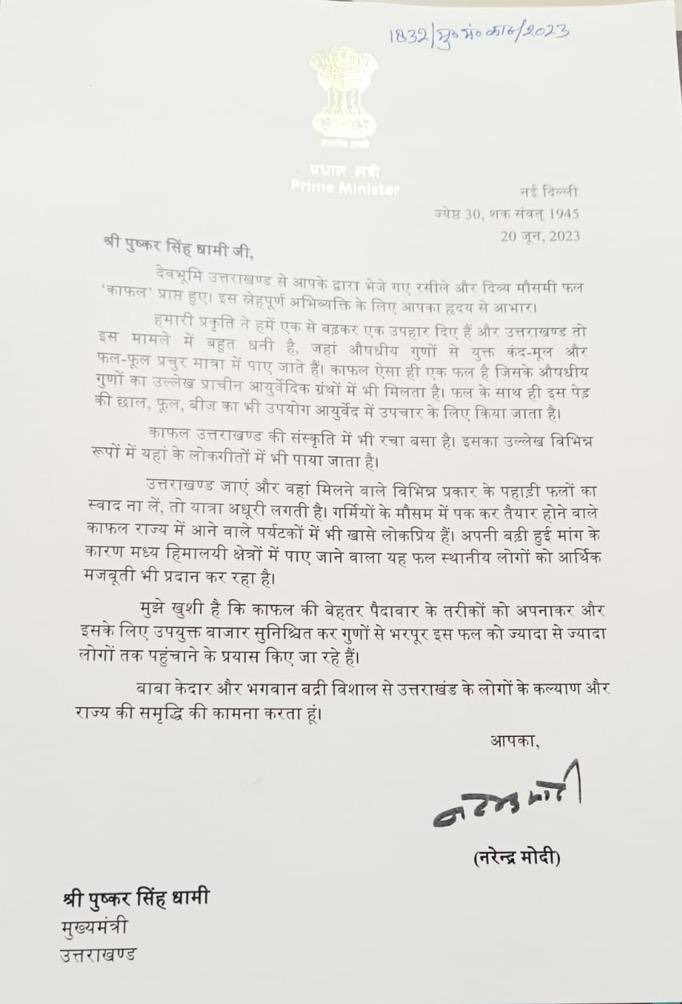 1832/मु०मं०का०/2023
सत्यमेव जयते
प्रधान मंत्री
Prime Minister
नई दिल्ली
ज्येष्ठ 30, शक संवत् 1945
20 जून, 2023
श्री पुष्कर सिंह धामी जी,
देवभूमि उत्तराखण्ड से आपके द्वारा भेजे गए रसीले और दिव्य मौसमी फल
‘काफल’ प्राप्त हुए। इस स्नेहपूर्ण अभिव्यक्ति के लिए आपका हृदय से आभार।
हमारी प्रकृति ने हमें एक से बढ़कर एक उपहार दिए हैं और उत्तराखण्ड तो
इस मामले में बहुत धनी है, जहां औषधीय गुणों से युक्त कंद-मूल और
फल-फूल प्रचुर मात्रा में पाए जाते हैं। काफल ऐसा ही एक फल है जिसके औषधीय
गुणों का उल्लेख प्राचीन आयुर्वेदिक ग्रंथों में भी मिलता है। फल के साथ ही इस पेड़
की छाल, फूल, बीज का भी उपयोग आयुर्वेद में उपचार के लिए किया जाता है।
काफल उत्तराखण्ड की संस्कृति में भी रचा बसा है। इसका उल्लेख विभिन्न
रूपों में यहां के लोकगीतों में भी पाया जाता है।
उत्तराखण्ड जाएं और वहां मिलने वाले विभिन्न प्रकार के पहाड़ी फलों का
स्वाद ना लें, तो यात्रा अधूरी लगती है। गर्मियों के मौसम में पक कर तैयार होने वाले
काफल राज्य में आने वाले पर्यटकों में भी खासे लोकप्रिय हैं। अपनी बढ़ी हुई मांग के
कारण मध्य हिमालयी क्षेत्रों में पाए जाने वाला यह फल स्थानीय लोगों को आर्थिक
मजबूती भी प्रदान कर रहा है।
मुझे खुशी है कि काफल की बेहतर पैदावार के तरीकों को अपनाकर और
इसके लिए उपयुक्त बाजार सुनिश्चित कर गुणों से भरपूर इस फल को ज्यादा से ज्यादा
लोगों तक पहुंचाने के प्रयास किए जा रहे हैं।
बाबा केदार और भगवान बद्री विशाल से उत्तराखंड के लोगों के कल्याण और
राज्य की समृद्धि की कामना करता हूं।
आपका,
नरेन्द्र मोदी
(नरेन्द्र मोदी)
श्री पुष्कर सिंह धामी
मुख्यमंत्री
उत्तराखण्ड